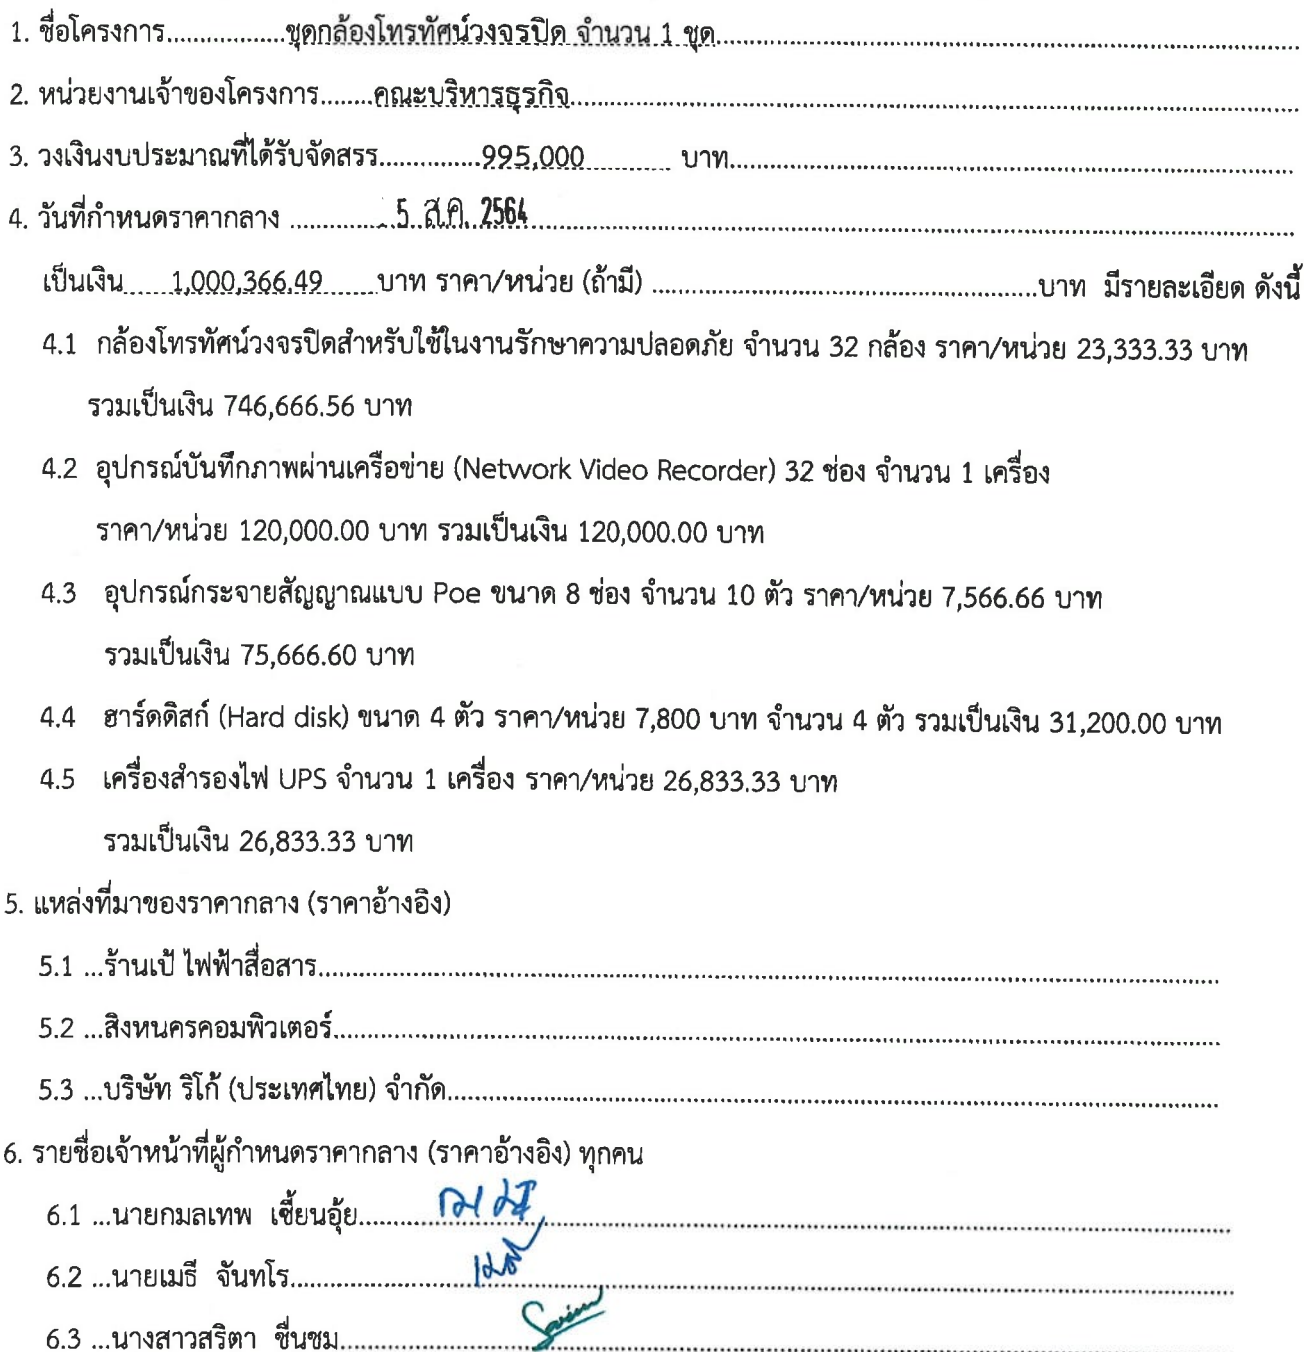 1. ชื่อโครงการ..................ชุดกล้องโทรทัศน์วงจรปิด จำนวน 1 ชุด..................
2. หน่วยงานเจ้าของโครงการ........คณะบริหารธุรกิจ..................
3. วงเงินงบประมาณที่ได้รับจัดสรร...............995,000............... บาท..................
4. วันที่กำหนดราคากลาง ...............5 ส.ค. 2564..................
เป็นเงิน......1,000,366.49.......บาท ราคา/หน่วย (ถ้ามี) ..................บาท มีรายละเอียด ดังนี้
4.1 กล้องโทรทัศน์วงจรปิดสำหรับใช้ในงานรักษาความปลอดภัย จำนวน 32 กล้อง ราคา/หน่วย 23,333.33 บาท
รวมเป็นเงิน 746,666.56 บาท
4.2 อุปกรณ์บันทึกภาพผ่านเครือข่าย (Network Video Recorder) 32 ช่อง จำนวน 1 เครื่อง
ราคา/หน่วย 120,000.00 บาท รวมเป็นเงิน 120,000.00 บาท
4.3 อุปกรณ์กระจายสัญญาณแบบ Poe ขนาด 8 ช่อง จำนวน 10 ตัว ราคา/หน่วย 7,566.66 บาท
รวมเป็นเงิน 75,666.60 บาท
4.4 ฮาร์ดดิสก์ (Hard disk) ขนาด 4 ตัว ราคา/หน่วย 7,800 บาท จำนวน 4 ตัว รวมเป็นเงิน 31,200.00 บาท
4.5 เครื่องสำรองไฟ UPS จำนวน 1 เครื่อง ราคา/หน่วย 26,833.33 บาท
รวมเป็นเงิน 26,833.33 บาท
5. แหล่งที่มาของราคากลาง (ราคาอ้างอิง)
5.1 ...ร้านเป้ ไฟฟ้าสื่อสาร..................
5.2 ...สิงหนครคอมพิวเตอร์..................
5.3 ...บริษัท ริโก้ (ประเทศไทย) จำกัด..................
6. รายชื่อเจ้าหน้าที่ผู้กำหนดราคากลาง (ราคาอ้างอิง) ทุกคน
6.1 ...นายกมลเทพ เซี้ยนอุ้ย..................
6.2 ...นายเมธี จันทโร..................
6.3 ...นางสาวสริตา ชื่นชม..................